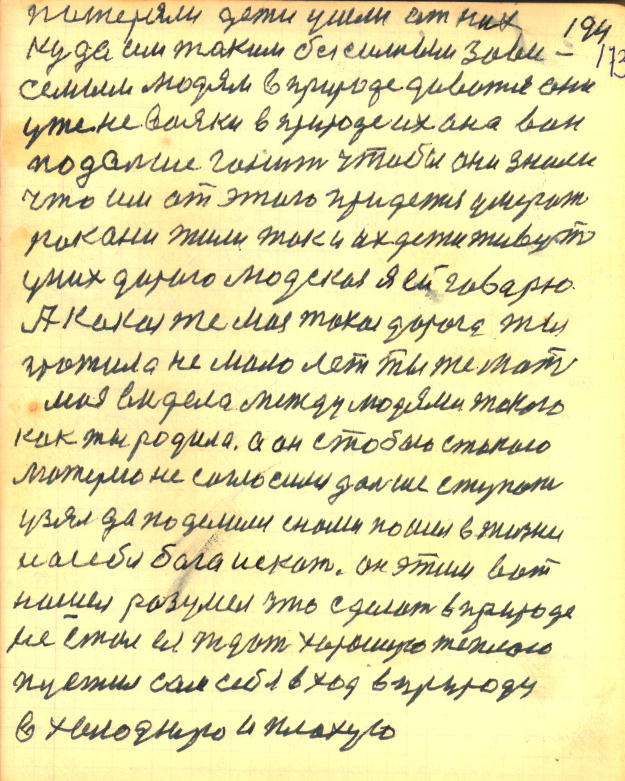 потеряли дети ушли от них 194
куда им таким бесильным зави- 173
семым людям в природе диватся они
уже не вояки в природе их она вон
подальше гонит чтобы они знали
что им от этого придется умират
как они жили так и их дети живут
у них дорога людская я ей говарю.
А какая же моя такая дорога ты
прожила не мало лет ты же мать
моя видела между людями такого
как ты родила. а он с тобою с такою
матерю не согласился дальше ступат
узял да поделился с нами пошел в жизни
на себя бога искат. он этим вот
нашел разумел что сделат в природе
не стал ея ждат хорошую теплою
пустил сам себя в ход в природу
в холодную и плохую